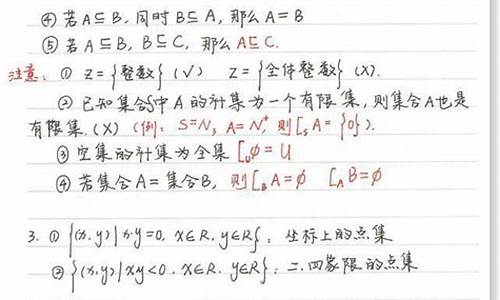 ④ 若A⊆B, 同时B⊆A, 那么A=B
⑤ 若A⊆B, B⊆C, 那么A⊆C.
注意: ① Z={整数}(√) Z={全体整数}(X).
② 已知集合S中A的补集为一个有限集, 则集合A也是
有限集.(X) (例: S=N, A=N⁺, 则[ₛA={0}).
③ 空集的补集为全集 [ᵤφ=U
④ 若集合A=集合B, 则[ʙA=φ [ᴀB=φ
3. ① {(x,y)|x·y=0, x∈R, y∈R}: 坐标上的点集
② {(x,y)|xy<0, x∈R, y∈R}: 二.四象限的点集